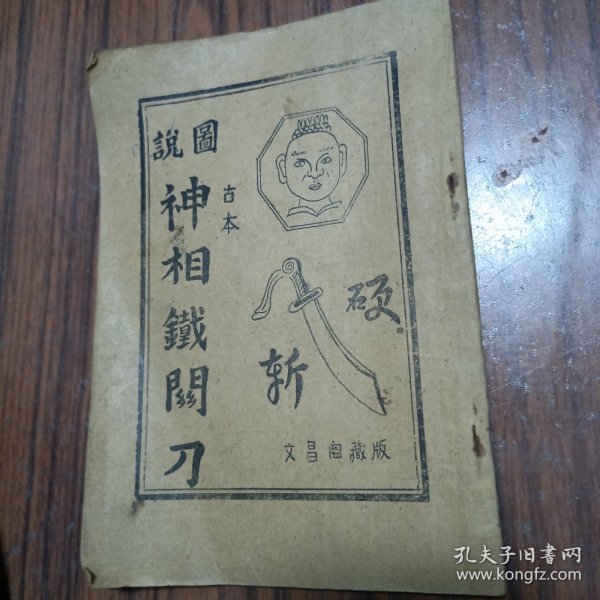 圖說
古本
神相鐵關刀
硬
斬
文昌宮藏版
孔夫子旧书网
www.kongfz.com